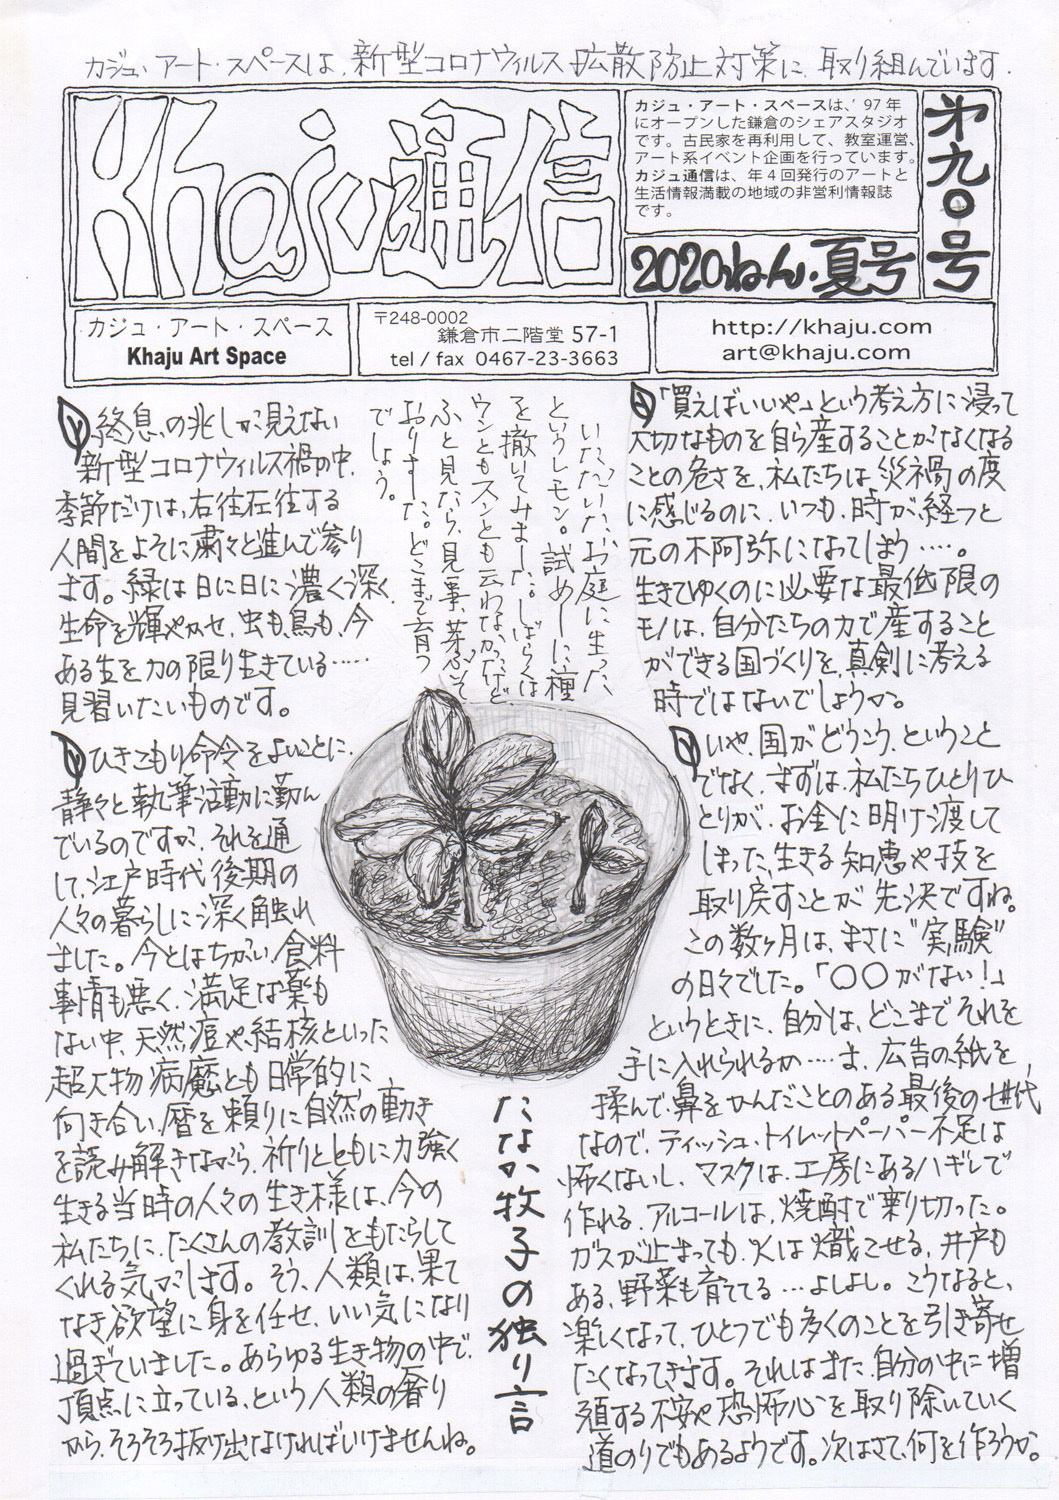 カジュ・アート・スペースは、新型コロナウィルス拡散防止対策に、取り組んでいます.
Khaju通信
カジュ・アート・スペースは、'97年
にオープンした鎌倉のシェアスタジオ
です。古民家を再利用して、教室運営、
アート系イベント企画を行っています。
カジュ通信は、年4回発行のアートと
生活情報満載の地域の非営利情報誌
です。
2020ねん.夏号
㐧九〇号
カジュ・アート・スペース
Khaju Art Space
〒248-0002
鎌倉市二階堂 57-1
tel / fax 0467-23-3663
http://khaju.com
art@khaju.com
終息の兆しが見えない
新型コロナウィルス禍の中、
季節だけは、右往左往する
人間をよそに粛々と進んで参り
ます。緑は日に日に濃く深く、
生命を輝やかせ、虫も、鳥も、今
ある生を力の限り生きている……
見習いたいものです。
ひきこもり命令をよいことに、
静々と執筆活動に勤ん
でいるのですが、それを通
して、江戸時代後期の
人々の暮らしに深く触れ
ました。今とはちがい、食料
事情も悪く、満足な薬も
ない中、天然痘や、結核といった
超大物病魔とも日常的に
向き合い、暦を頼りに自然の動き
を読み解きながら、祈りとともに力強く
生きる当時の人々の生き様は、今の
私たちに、たくさんの教訓をもたらして
くれる気がします。そう、人類は、果て
なき欲望に身を任せ、いい気になり
過ぎていました。あらゆる生き物の中で、
頂点に立っている、という人類の奢り
から、そろそろ抜け出なければいけませんね。
いただいた、お庭に生った
というレモン。試めしに種
を撒いてみました。しばらくは
ウンともスンとも云わなかったけど、
ふと見たら、見事、芽がでて
おりました。どこまで育つ
でしょう。
たなか牧子の独り言
「買えばいいや」という考え方に浸って
大切なものを自ら産することがなくなる
ことの危さを、私たちは、災禍の度
に感じるのに、いつも、時が経つと
元の木阿弥になってしまう……。
生きてゆくのに必要な最低限の
モノは、自分たちの力で産すること
ができる国づくりを、真剣に考える
時ではないでしょうか。
いや、国がどうこう、ということ
でなく、まずは、私たちひとりひ
とりが、お金に明け渡して
しまった、生きる知恵や技を
取り戻すことが先決ですね。
この数ヶ月は、まさに“実験”
の日々でした。「〇〇がない!」
というときに、自分は、どこまでそれを
手に入れられるか……ま、広告の紙を、
揉んで、鼻をかんだことのある最後の世代
なので、ティッシュ・トイレットペーパー不足は
怖くないし、マスクは、工房にあるハギレで
作れる、アルコールは、焼酎で乗り切った。
ガスが止まっても、火は熾こせる、井戸も
ある、野菜も育ててる…よしよし。こうなると、
楽しくなって、ひとつでも多くのことを引き寄せ
たくなってきます。それはまた、自分の中に増
殖する不安や恐怖心を取り除いていく
道のりでもあるようです。次はさて、何を作ろうか。